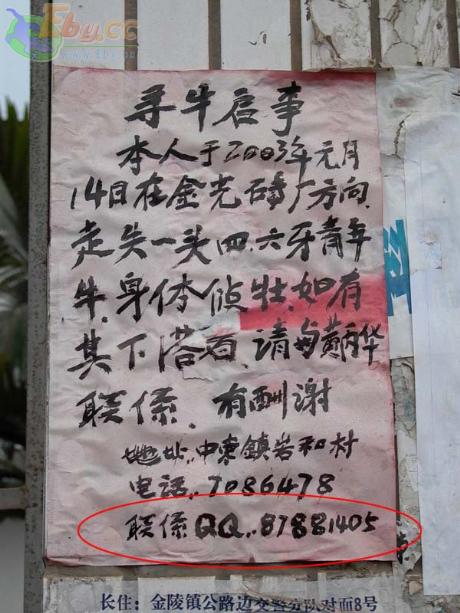 Eby.cc
寻牛启事
本人于2003年元月
14日在金光砖厂方向
走失一头四.六牙青年
牛,身体偵壮.如有
其下落者,请与黄丙华
联係.有酬谢
地址:中枣鎮岩和村
电话:7086478
联係QQ:87881405
长住:金陵镇公路边交警分队对面8号